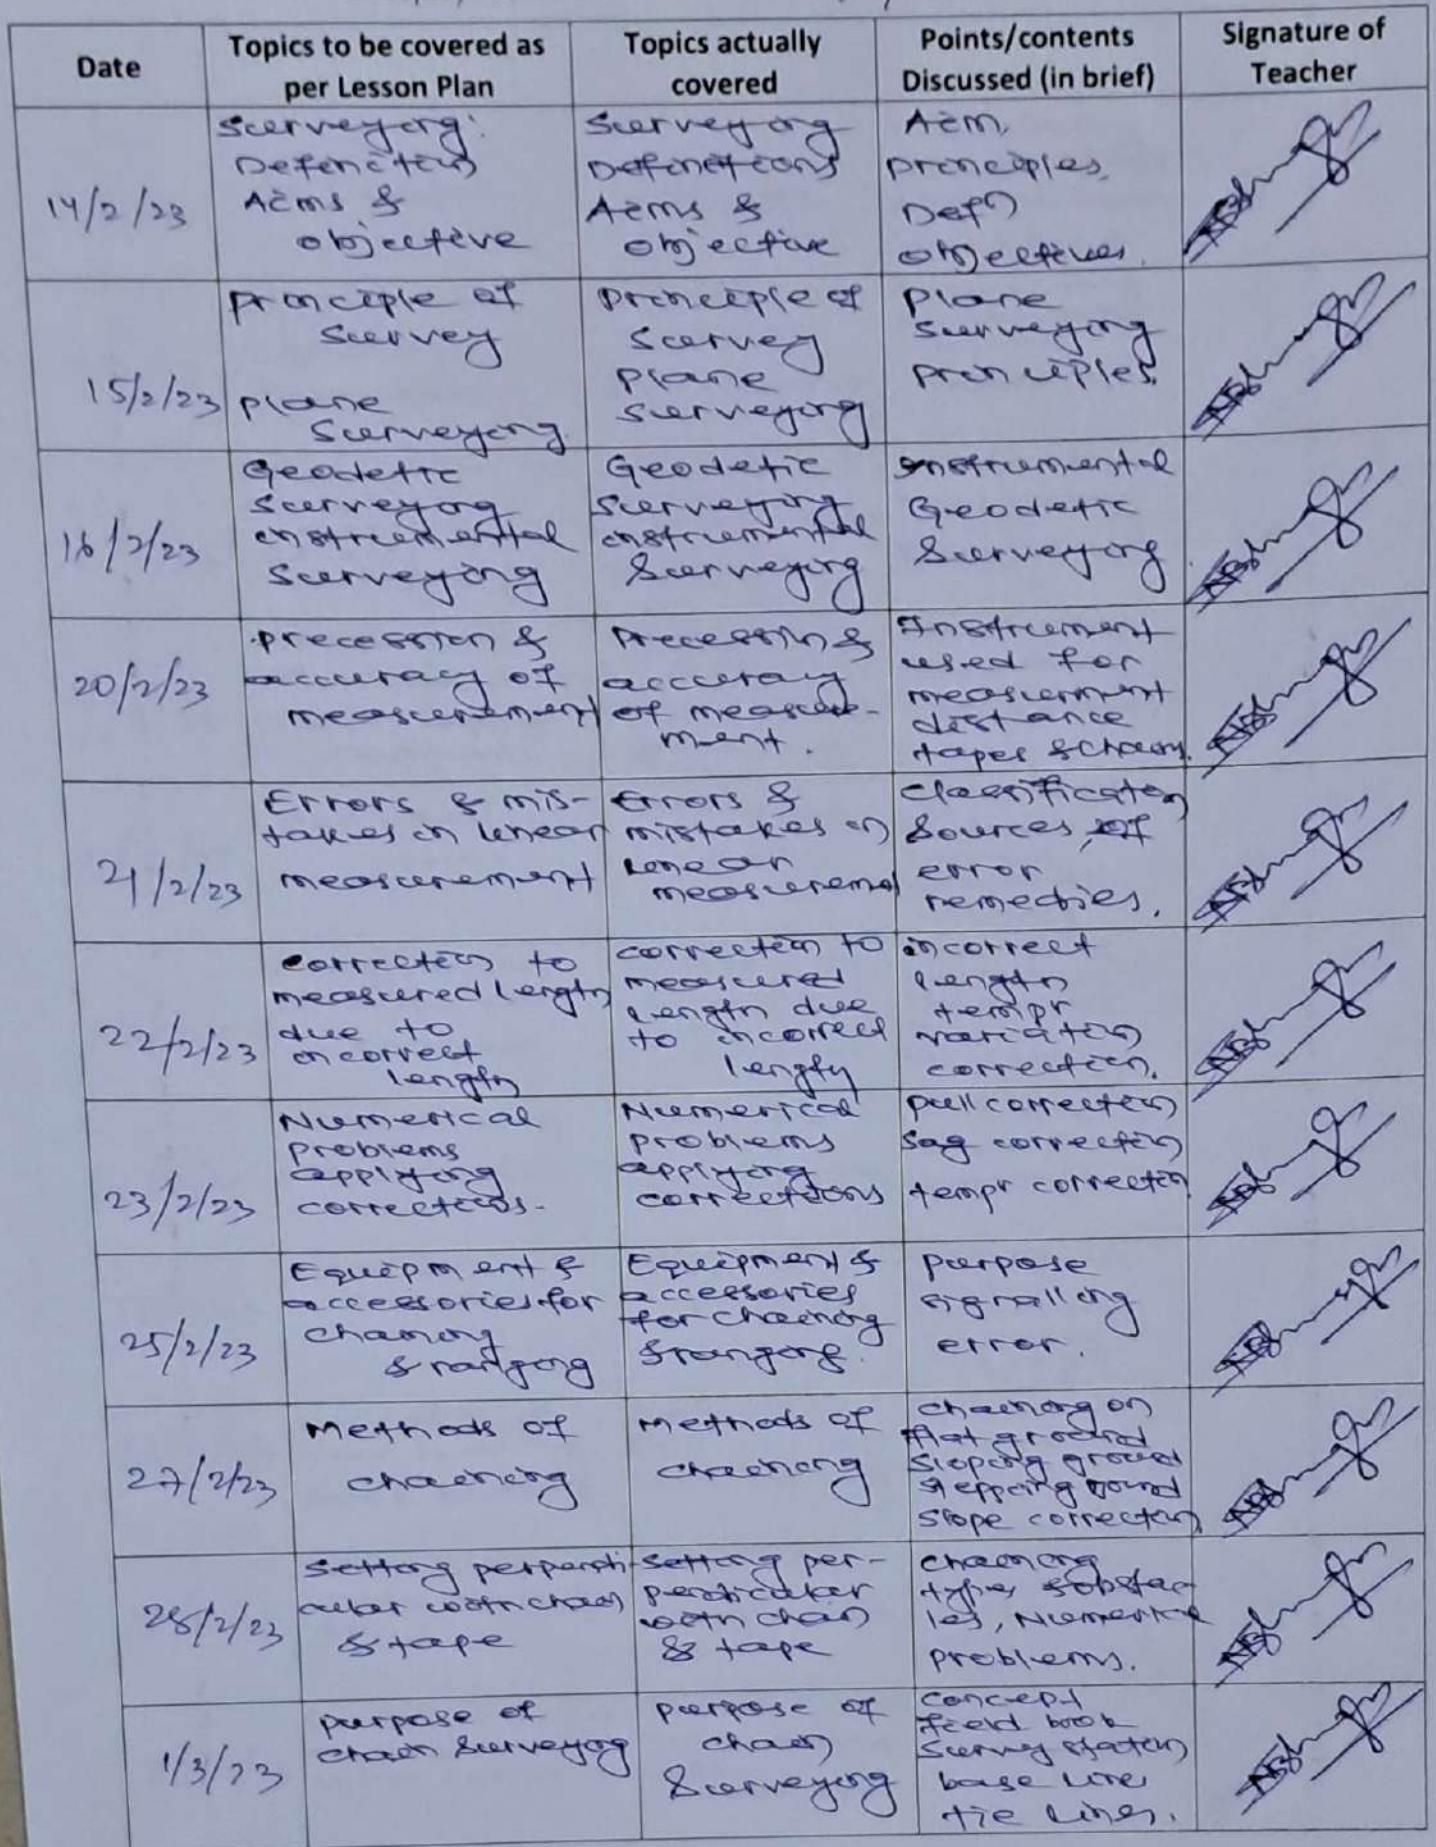 Date
Topics to be covered as
per Lesson Plan
Topics actually
covered
Points/contents
Discussed (in brief)
Signature of
Teacher
14/2/23
Surveying:
Definition
Aims &
objective
Surveying
Definitions
Aims &
objective
Aim,
principles,
Defn
objectives.
15/2/23
principle of
survey
plane
surveying
principle of
survey
plane
surveying
plane
surveying
principles.
16/2/23
Geodetic
surveying
instrumental
surveying
Geodetic
surveying
instrumental
surveying
instrumental
Geodetic
surveying
20/2/23
precession &
accuracy of
measurement
precession &
accuracy
of measure-
ment.
Instrument
used for
measurment
distance
tapes & chains.
21/2/23
Errors & mis-
takes in linear
measurement
Errors &
mistakes in
linear
measurement
classification
sources, of
error
remedies.
22/2/23
correction to
measured length
due to
incorrect
length
correction to
measured
length due
to incorrect
length
incorrect
length
tempr
variation
correction.
23/2/23
Numerical
problems
applying
corrections.
Numerical
problems
applying
corrections
pull correction
sag correction
tempr correction
25/2/23
Equipment &
accessories for
chaining
& ranging
Equipment &
accessories
for chaining
& ranging.
purpose
signalling
error.
27/2/23
Methods of
chaining
methods of
chaining
chaining on
flat ground
sloping ground
stepping
slope correction
28/2/23
setting perpendi-
cular with chain
& tape
setting per-
pendicular
with chain
& tape
chaining
types & obstac
les, Numerical
problems.
1/3/23
purpose of
chain surveying
purpose of
chain
surveying
concept
field book
survey station
base line
tie lines.